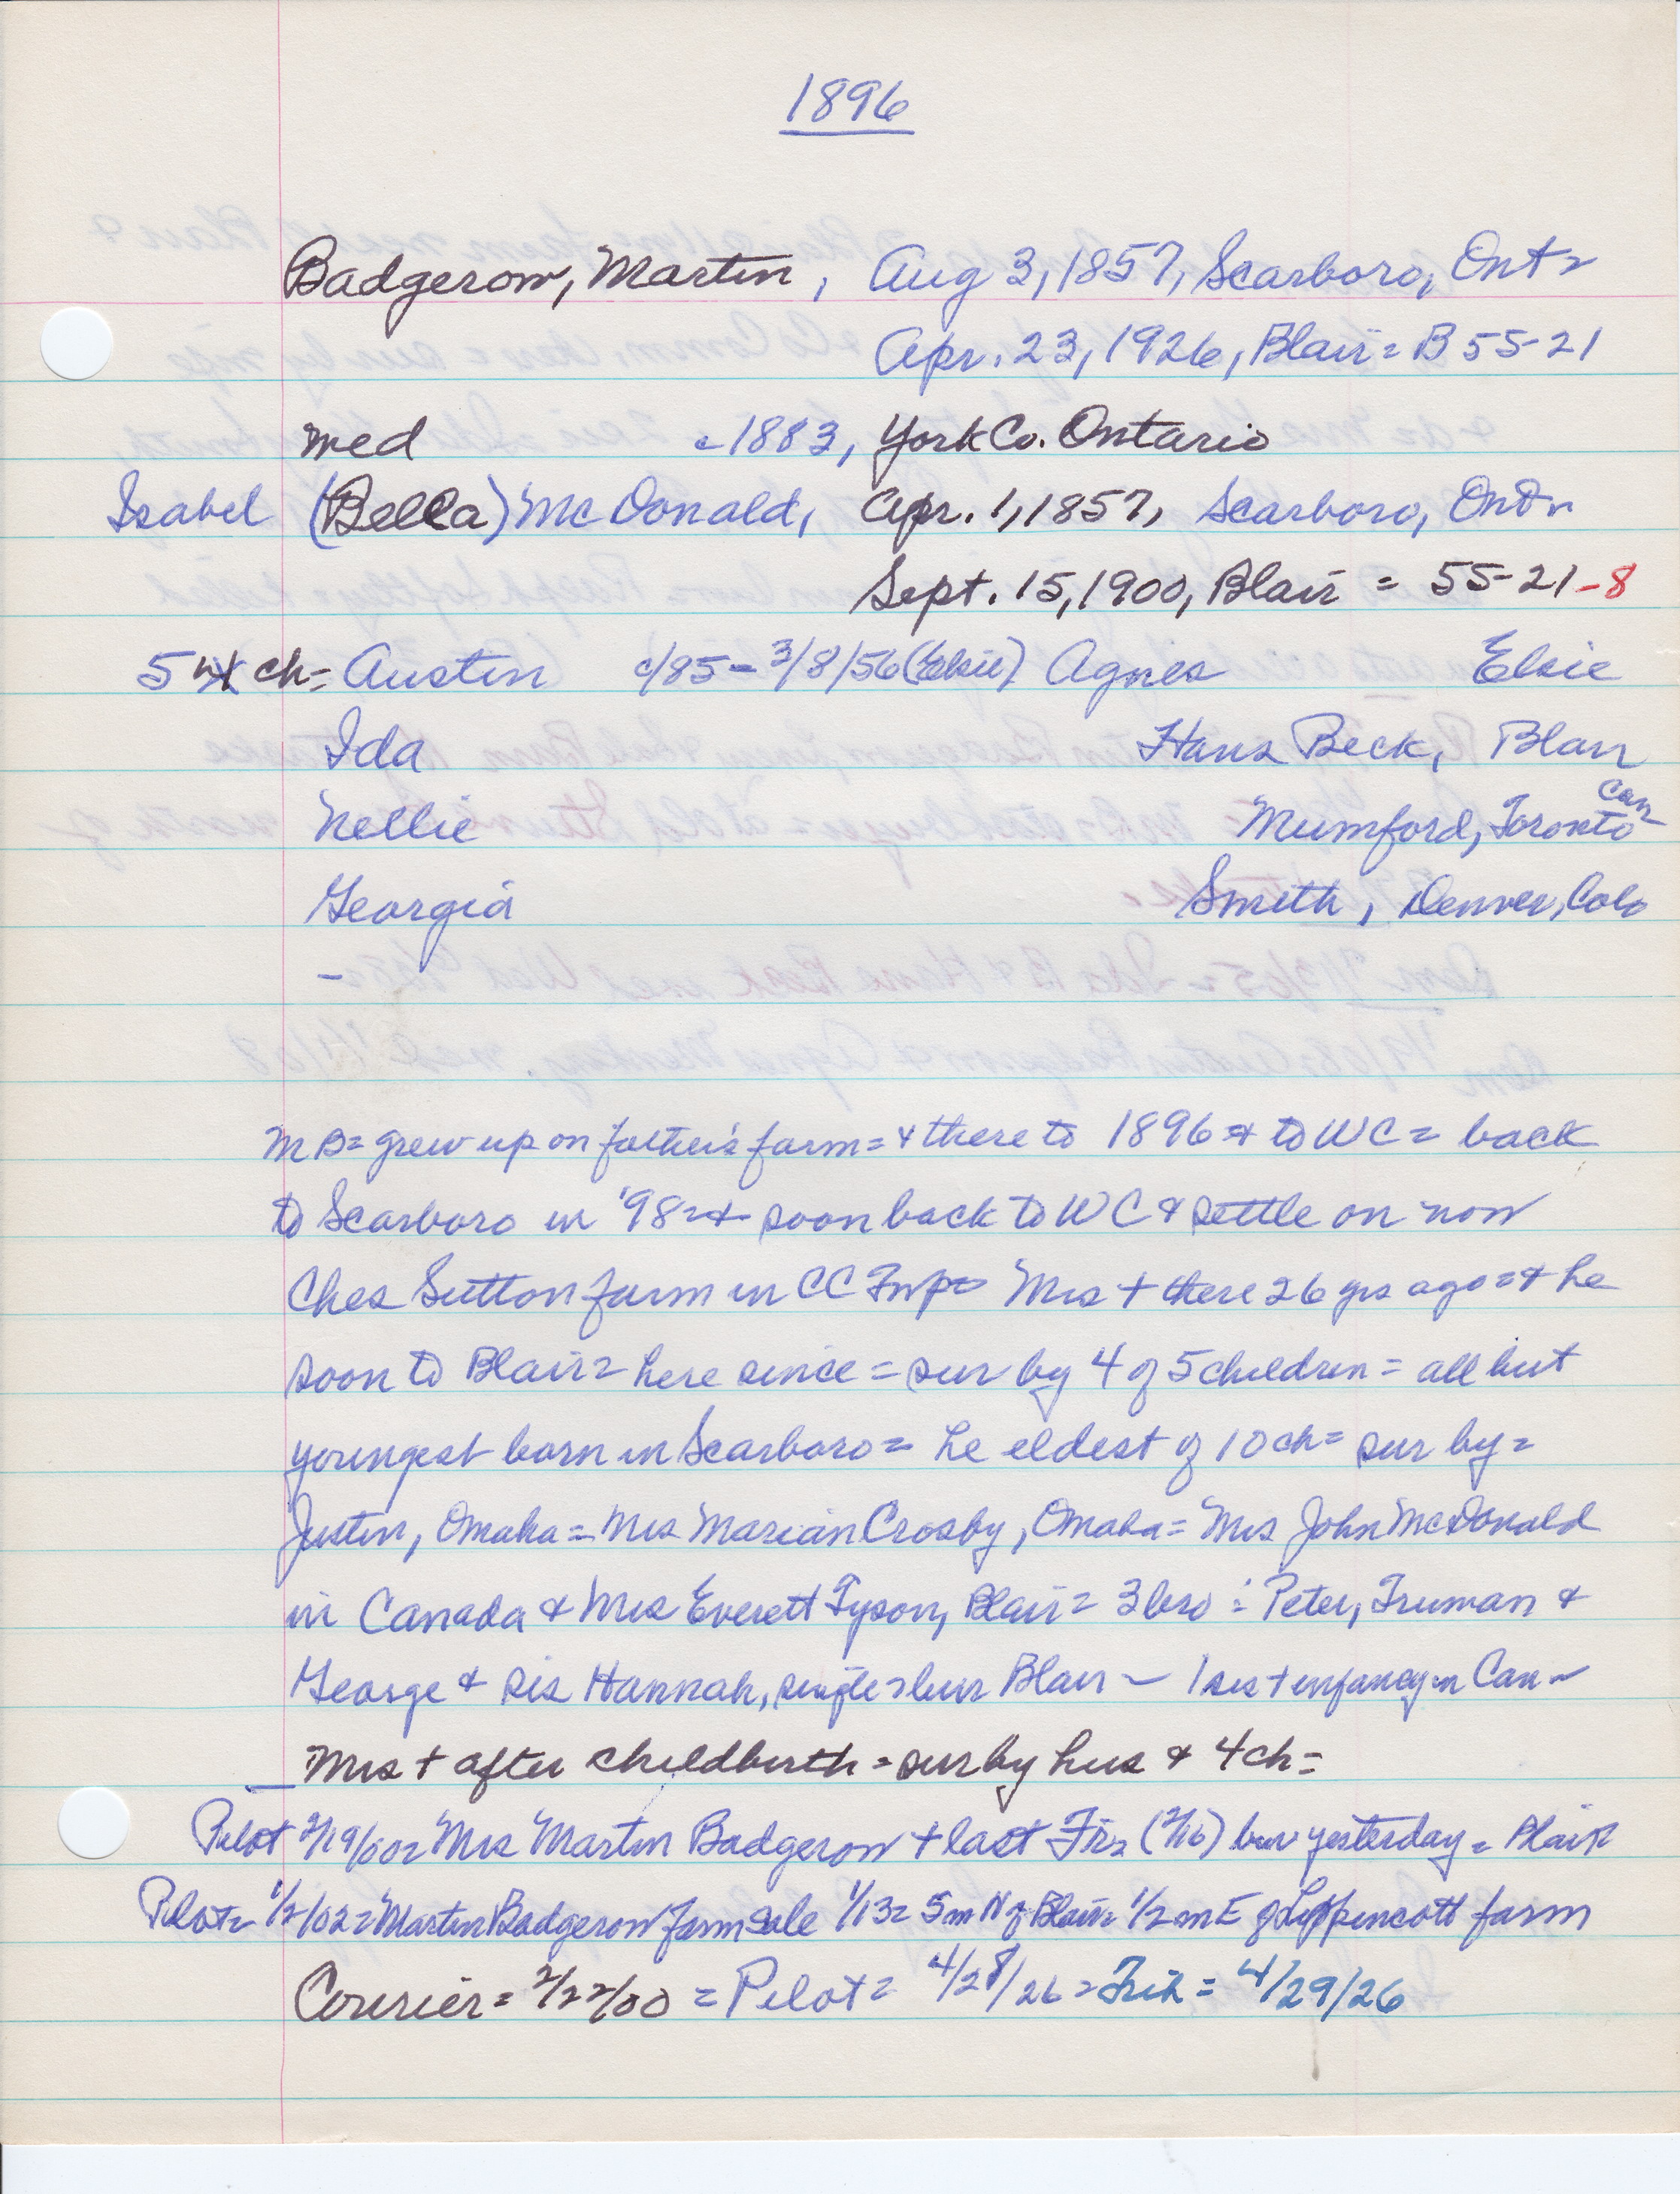 1896
Badgerow, Martin, Aug 3, 1857, Scarboro, Ont =
Apr. 23, 1926, Blair = B 55-21
med c 1883, York Co. Ontario
Isabel (Bella) McDonald, Apr. 1, 1857, Scarboro, Ont =
Sept. 15, 1900, Blair = 55-21-8
5 ch = Austin c/85 - 3/8/56 (Elsie) Agnes Elsie
Ida Hans Beck, Blair
Can
Nellie Mumford, Toronto
Georgia Smith, Denver, Colo
-
MB = grew up on father's farm = & there to 1896 = & to WC = back
to Scarboro in '98 = & soon back to WC & settle on now
Ches Sutton farm in CC Twp = Mrs + there 26 yrs ago = & he
soon to Blair = here since = sur by 4 of 5 children = all but
youngest born in Scarboro = he eldest of 10 ch = sur by =
Justin, Omaha = Mrs Marian Crosby, Omaha = Mrs John McDonald
in Canada & Mrs Everett Tyson, Blair = 3 bro : Peter, Truman &
George & sis Hannah, single = bur Blair - 1 sis + infancy in Can -
Mrs + after childbirth = sur by hus & 4 ch =
Pilot 2/19/00 = Mrs Martin Badgerow + last Fri = (2/16) bur yesterday = Blair
Pilot = 1/2/02 = Martin Badgerow farm sale 1/13 = 5 m N of Blair = 1/2 m E of Lippencott farm
Courier = 2/22/00 = Pilot = 4/28/26 = Trib = 4/29/26